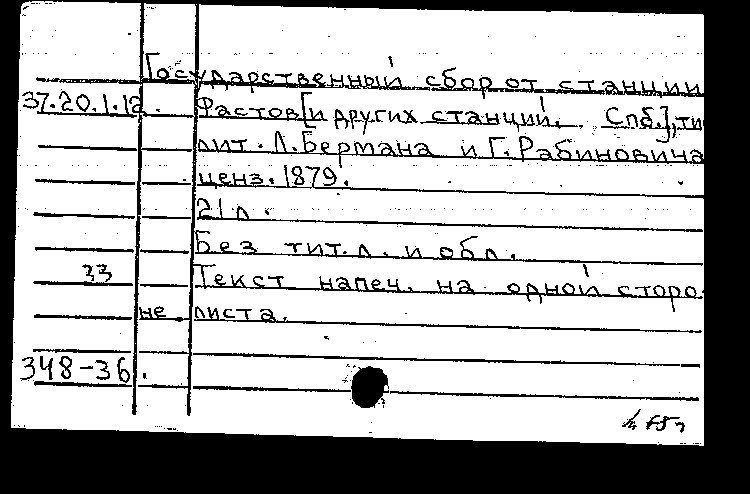 Государственный сбор от станции
37.20.1.12. Фастов[и других станций. Спб.], ти
лит. Л. Бермана и Г. Рабиновича
ценз. 1879.
21 л.
Без тит. л. и обл.
33 Текст напеч. на одной сторо
не листа.
348-36.